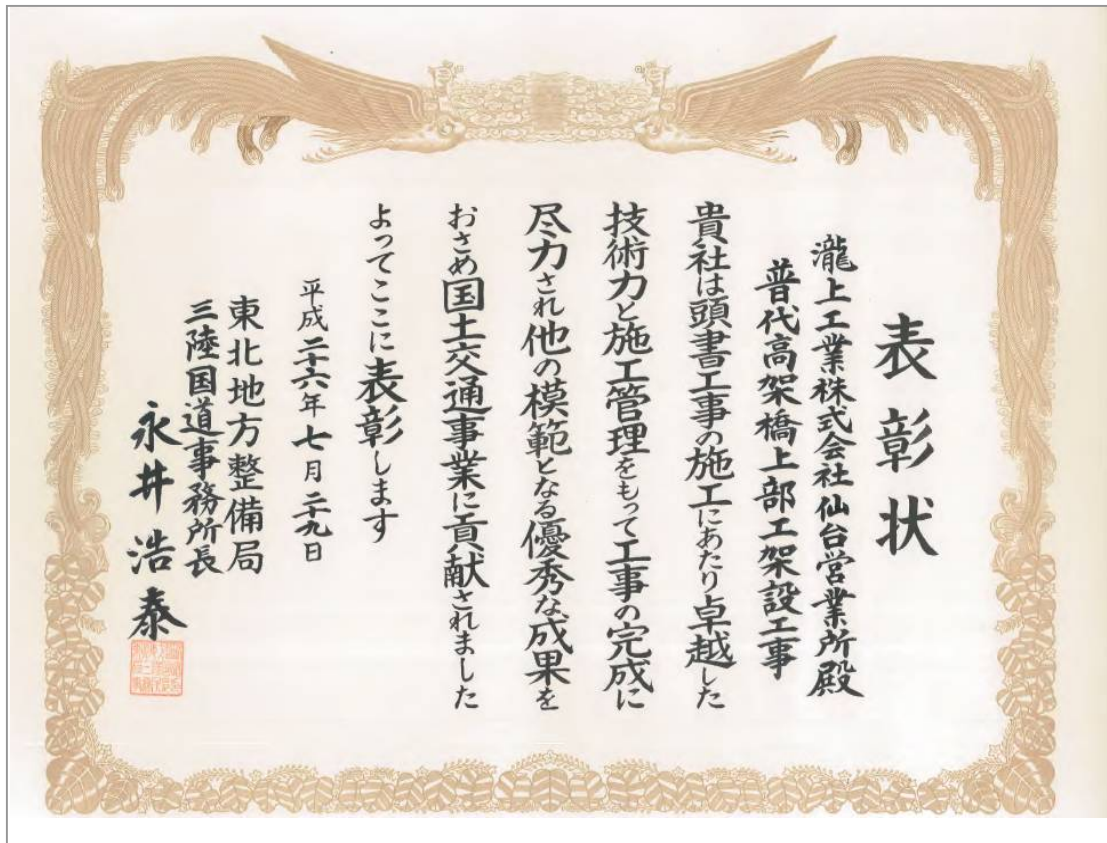 表彰状
瀧上工業株式会社仙台営業所殿
普代高架橋上部工架設工事
貴社は頭書工事の施工にあたり卓越した
技術力と施工管理をもって工事の完成に
尽力され他の模範となる優秀な成果を
おさめ国土交通事業に貢献されました
よってここに表彰します
平成二十六年七月二十九日
東北地方整備局
三陸国道事務所長
永井浩泰